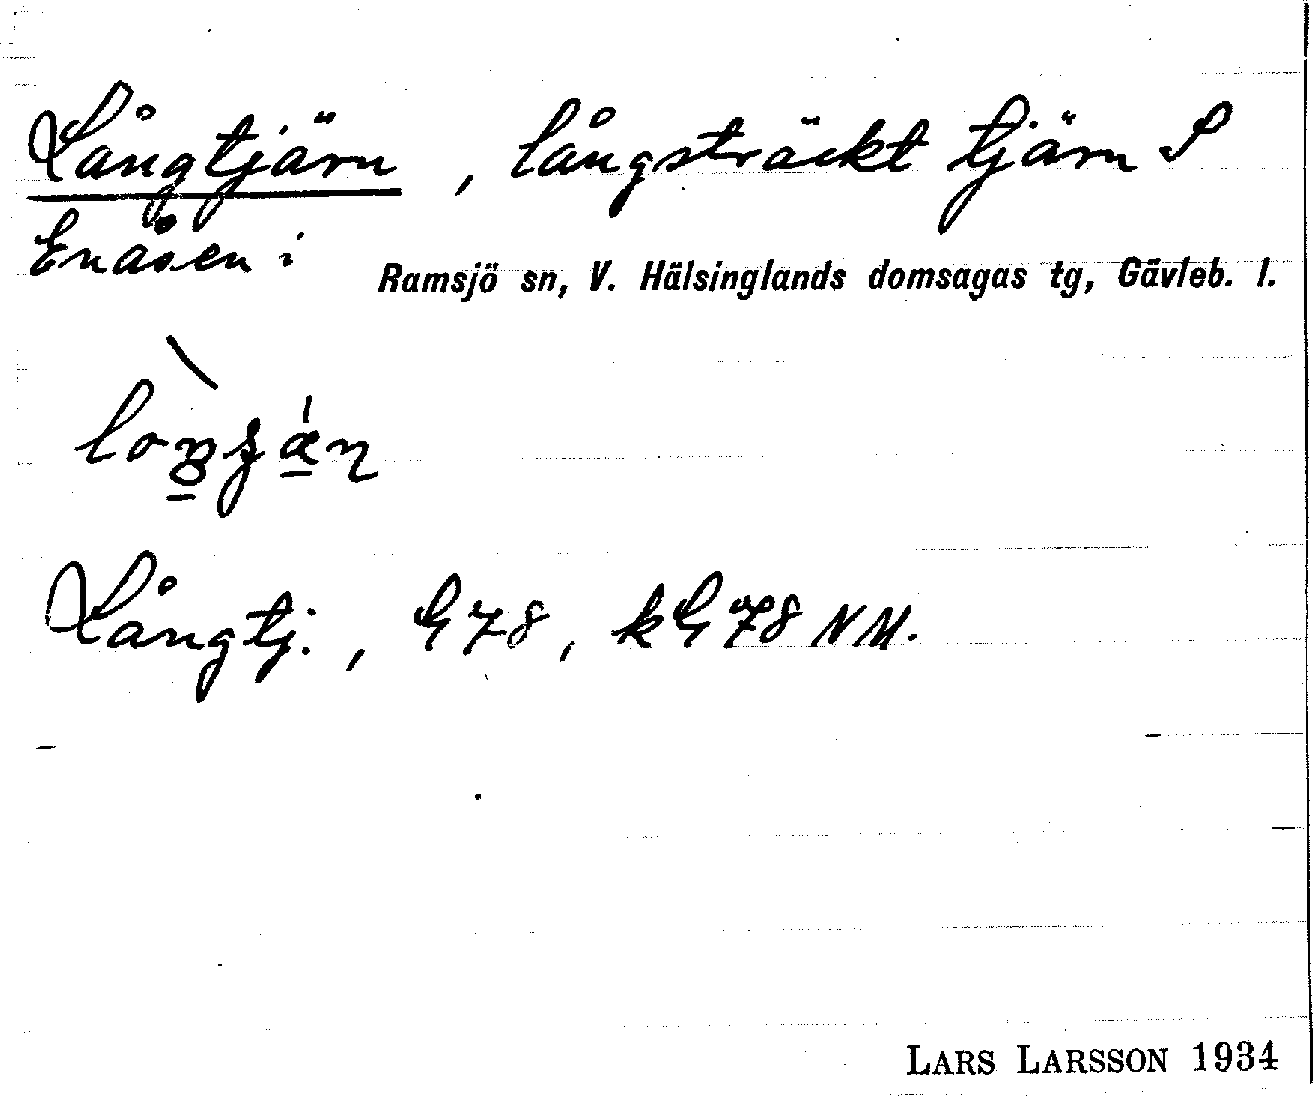 Långtjärn, långsträckt tjärn S
Enåsen i Ramsjö sn, V. Hälsinglands domsagas tg, Gävleb. l.
Långtj., G78, kG78 NM.
LARS LARSSON 1934